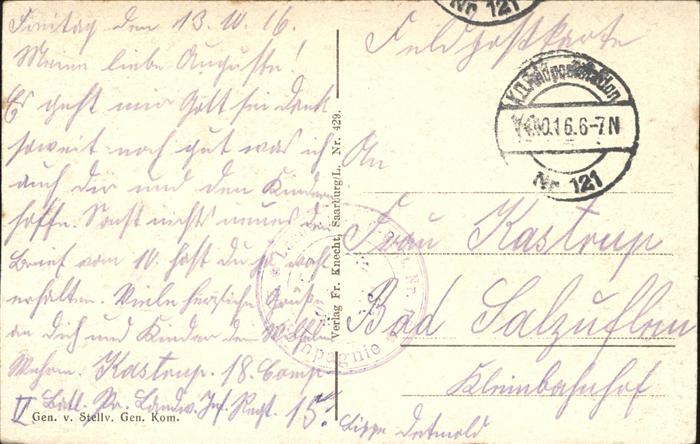 Freitag den 13.10.16.
Meine liebe Auguste!
Es geht mir Gott sei Dank
soweit noch gut was ich
auch dir und den Kinder
hoffe. Sonst nichts neues den
Brief vom 10. hast du ja wohl
erhalten. Viele herzliche Grüße
an dich und Kinder dein Wilhelm
Wehrm. Kastrup. 18. Comp.
V Batl. Pr. Landw. Inf. Regt. 15.
Gen. v. Stellv. Gen. Kom.
Verlag Fr. Knecht, Saarburg/L. Nr. 429.
Nr 121
Feldpostkarte
K.D. Feldpoststation
.10.16.6-7N
Nr. 121
An
Frau Kastrup
Bad Salzuflen
Kleinbahnhof
Lippe Detmold
Kompagnie